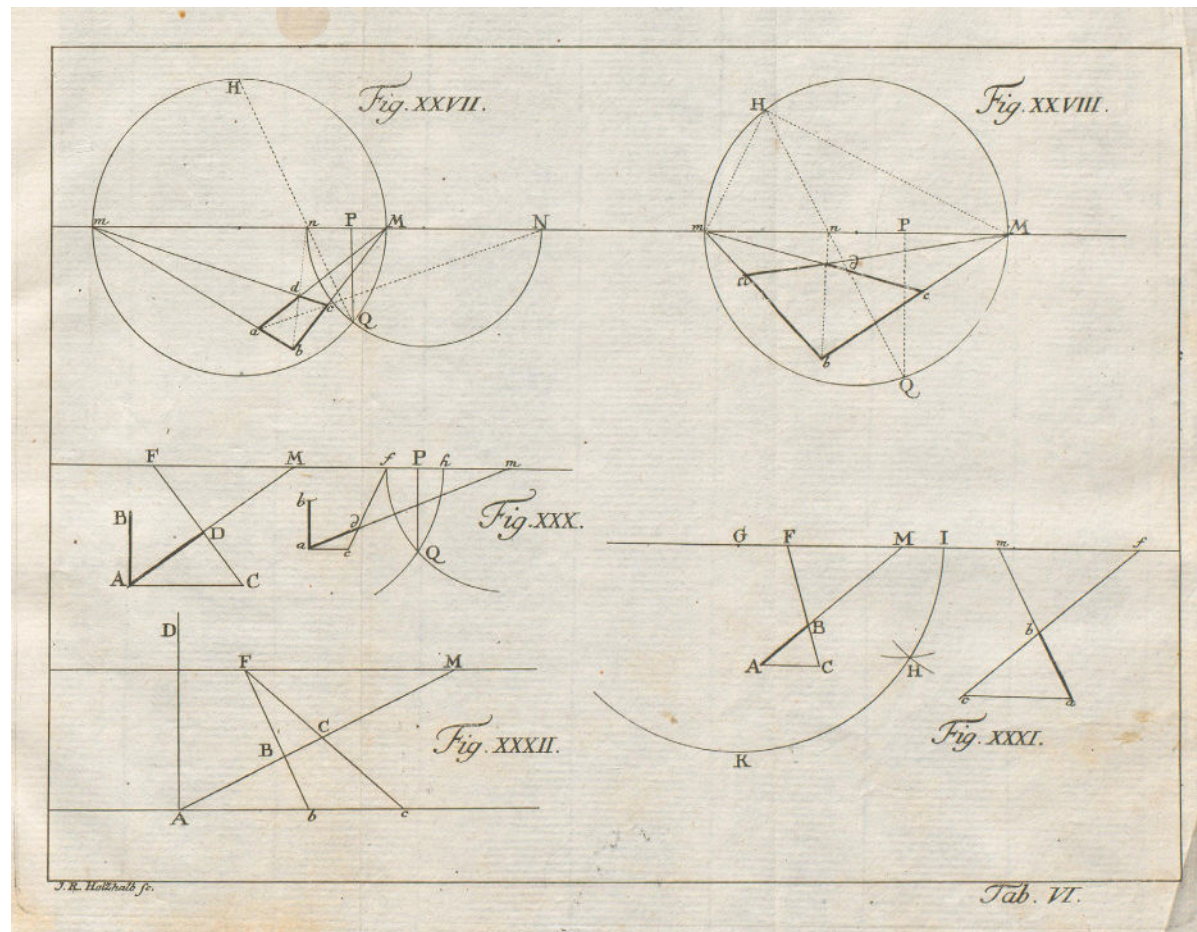 Fig. XXVII.
H
m n P M N
d
a c Q
b
Fig. XXVIII.
H
m n P M
a d c
b
Q
F M
B D
A C
f P h m
b
a c d
Q
Fig. XXX.
G F M I m f
B b
A C H c a
K
Fig. XXXI.
D
F M
B C
A b c
Fig. XXXII.
J. R. Holzhalb sc.
Tab. VI.